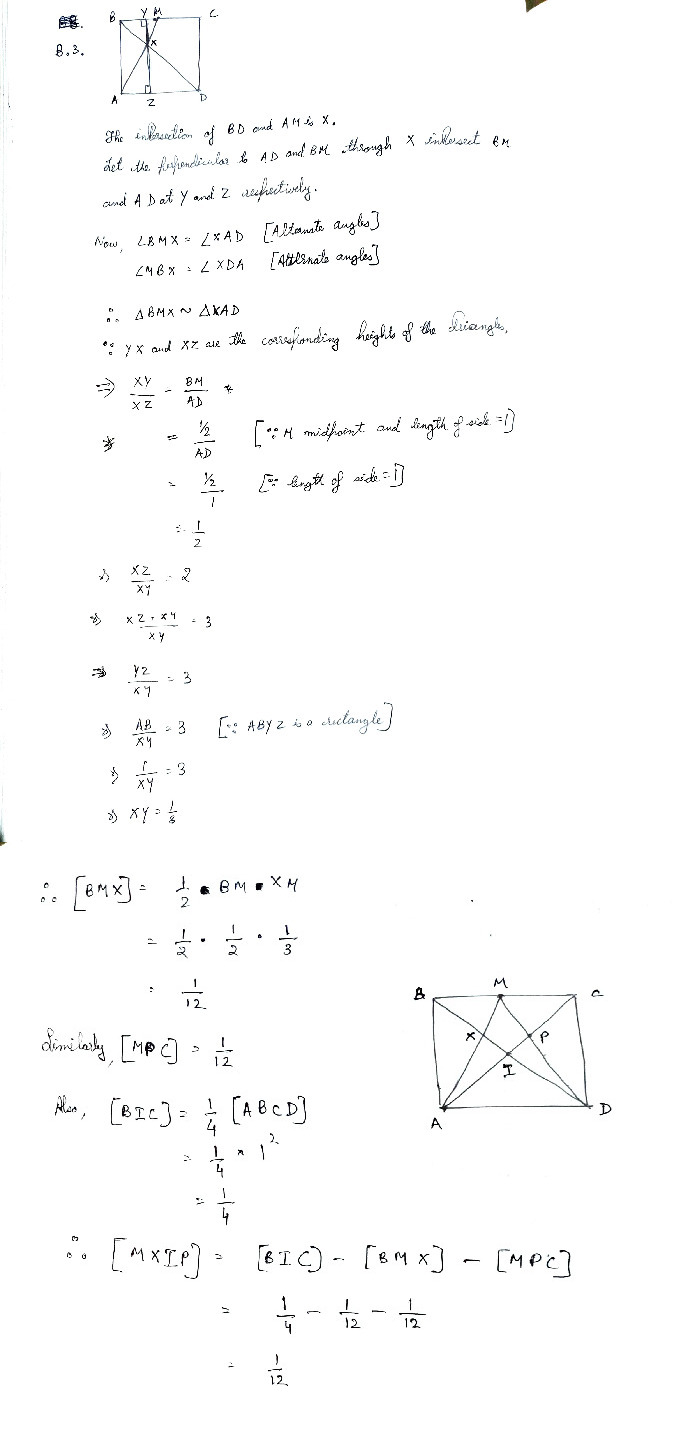 B.3.
B Y M C
X
A Z D
The intersection of BD and AM is X.
Let the perpendicular to AD and BM through X intersect BM
and AD at Y and Z respectively.
Now, ∠BMX = ∠XAD [Alternate angles]
∠MBX = ∠XDA [Alternate angles]
∴ ΔBMX ~ ΔXAD
∵ YX and XZ are the corresponding heights of the triangles,
⇒ XY/XZ = BM/AD
= ½/AD [∵ M midpoint and length of side = 1]
= ½/1 [∵ length of side = 1]
= 1/2
⇒ XZ/XY = 2
⇒ XZ + XY/XY = 3
⇒ YZ/XY = 3
⇒ AB/XY = 3 [∵ ABYZ is a rectangle]
⇒ 1/XY = 3
⇒ XY = 1/3
∴ [BMX] = 1/2 · BM · XM
= 1/2 · 1/2 · 1/3
= 1/12
Similarly, [MPC] = 1/12
Also, [BIC] = 1/4 [ABCD]
= 1/4 × 1²
= 1/4
B M C
X P
I
A D
∴ [MXIP] = [BIC] - [BMX] - [MPC]
= 1/4 - 1/12 - 1/12
= 1/12